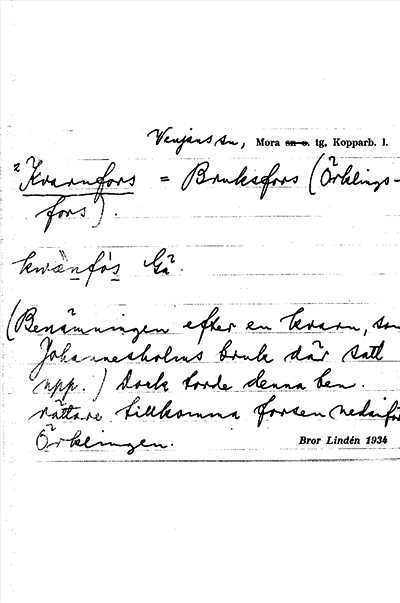 Venjans sn, Mora sn o. tg, Kopparb. l.
2 Kvarnfors = Bruksfors (Örklings-
fors).
kwæ̀nfȯs Gå.
(Benämningen efter en kvarn, som
Johannesholms bruk där satt
upp.) Dock torde denna ben.
rättare tillkomma forsen nedanför
Örklingen.
Bror Lindén 1934